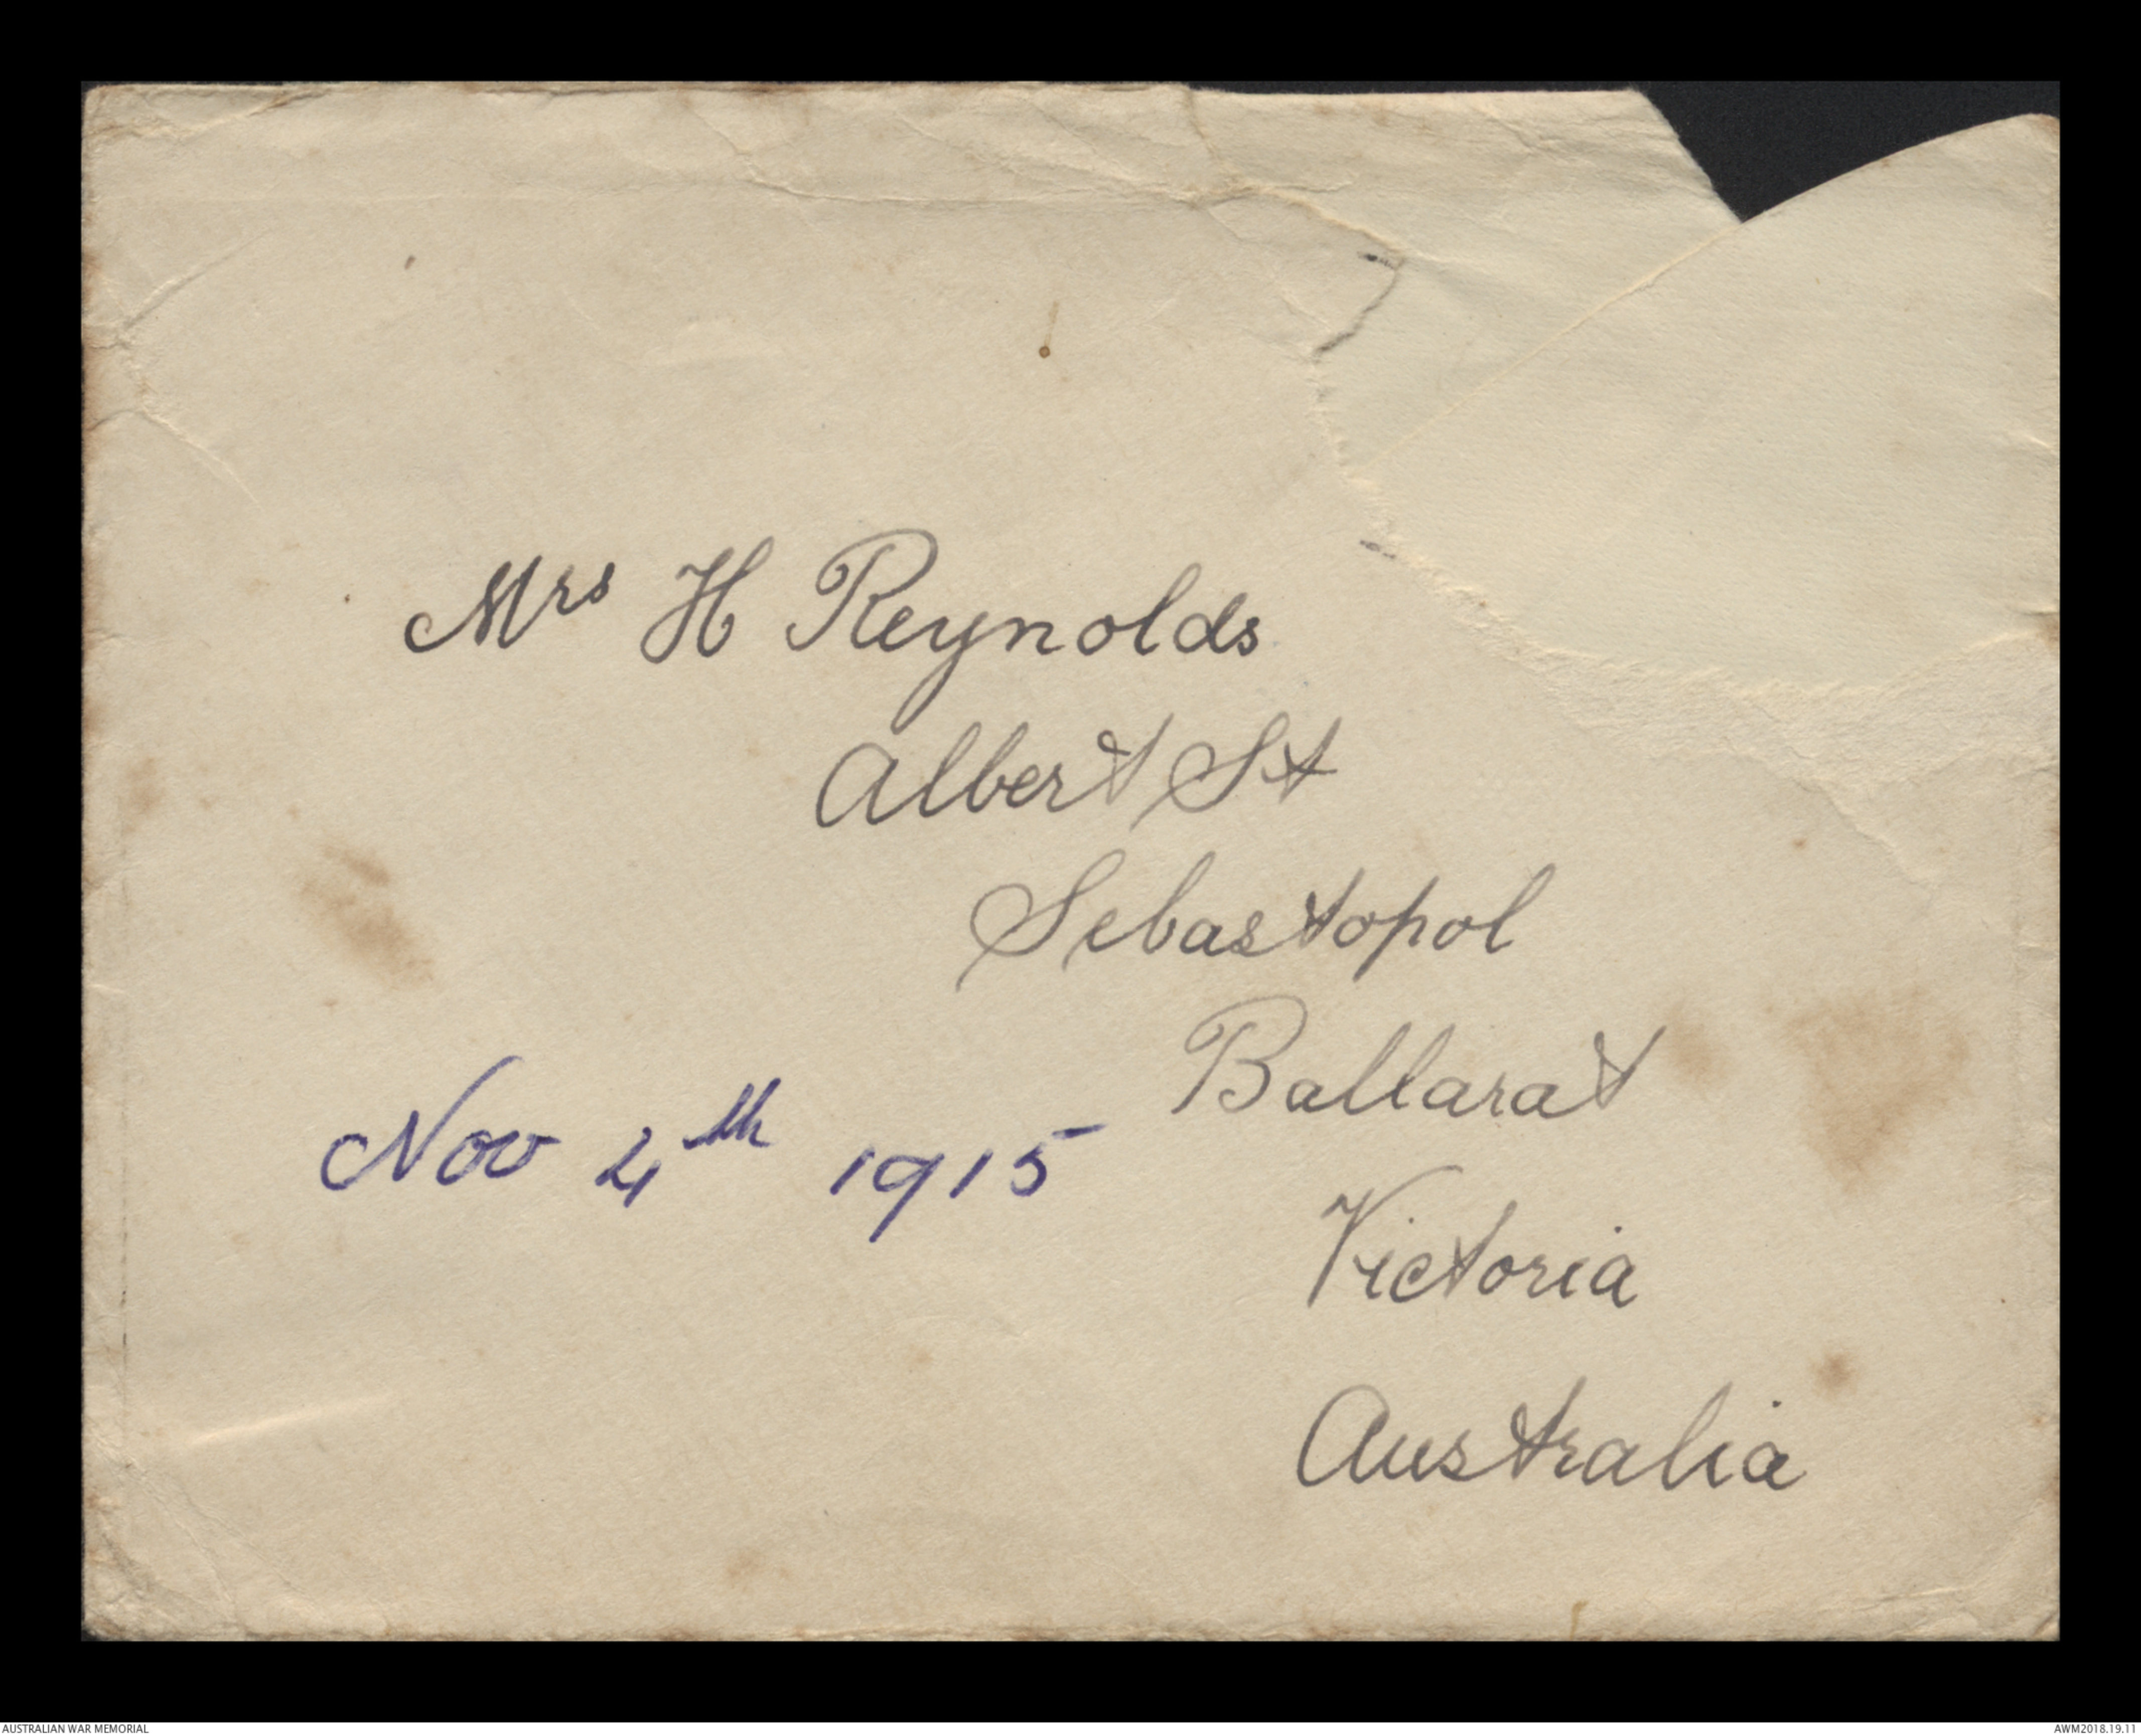 Mrs H Reynolds
Albert St
Sebastopol
Ballarat
Nov 4th 1915
Victoria
Australia
AUSTRALIAN WAR MEMORIAL
AWM2018.19.11